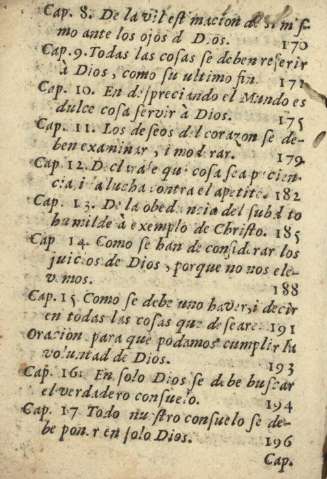 Cap. 8. De la vil estimacion de simis-
mo ante los ojos d Dios. 170
Cap. 9. Todas las cosas se deben referir
à Dios, como su ultimo fin. 171
Cap. 10. En despreciando el Mundo es
dulce cosa servir à Dios. 175
Cap. 11. Los deseos del corazon se de-
ben examinar, i moderar. 179
Cap. 12. Declarase que cosa sea pacien-
cia, i la lucha contra el apetito. 182
Cap. 13. De la obediencia del subdito
humilde à exemplo de Christo. 185
Cap 14. Como se han de considerar los
juicios de Dios, porque no nos ele-
vemos. 188
Cap. 15 Como se debe uno haver, i decir
en todas las cosas que deseare. 191
Oracion para que podamos cumplir la
voluntad de Dios. 193
Cap. 16. En solo Dios se debe buscar
el verdadero consuelo. 194
Cap. 17 Todo nuestro consuelo se de-
be poner en solo Dios. 196
Cap.